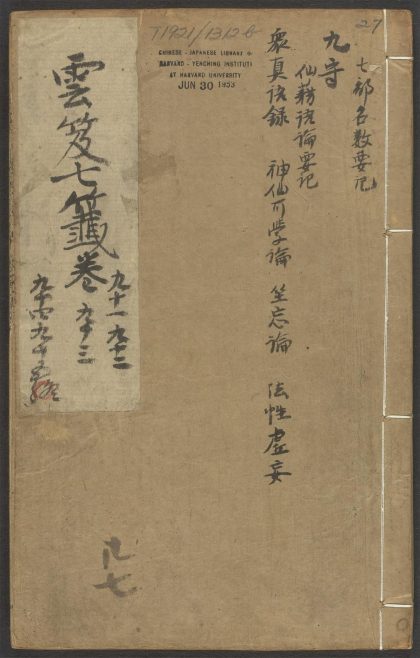 27
T1921/1312b
CHINESE - JAPANESE LIBRARY O
HARVARD - YENCHING INSTITUTE
AT HARVARD UNIVERSITY
JUN 30 1933
七部名數要記
九守
仙籍語論要記
衆真語錄 神仙可學論 坐忘論 法性虛妄
雲笈七籤卷
九十一 九十二
九十三
九十四 九十五
廿七